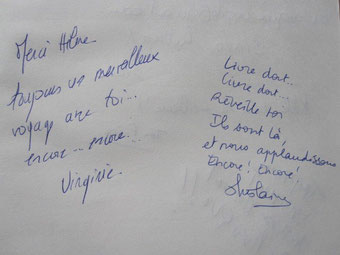 Merci Hélène
toujours un merveilleux
voyage avec toi...
encore... encore...
Virginie.
Livre dort...
Livre dort...
Réveille toi
Ils sont là,
et nous applaudissons
Encore! Encore!
Ghislaine